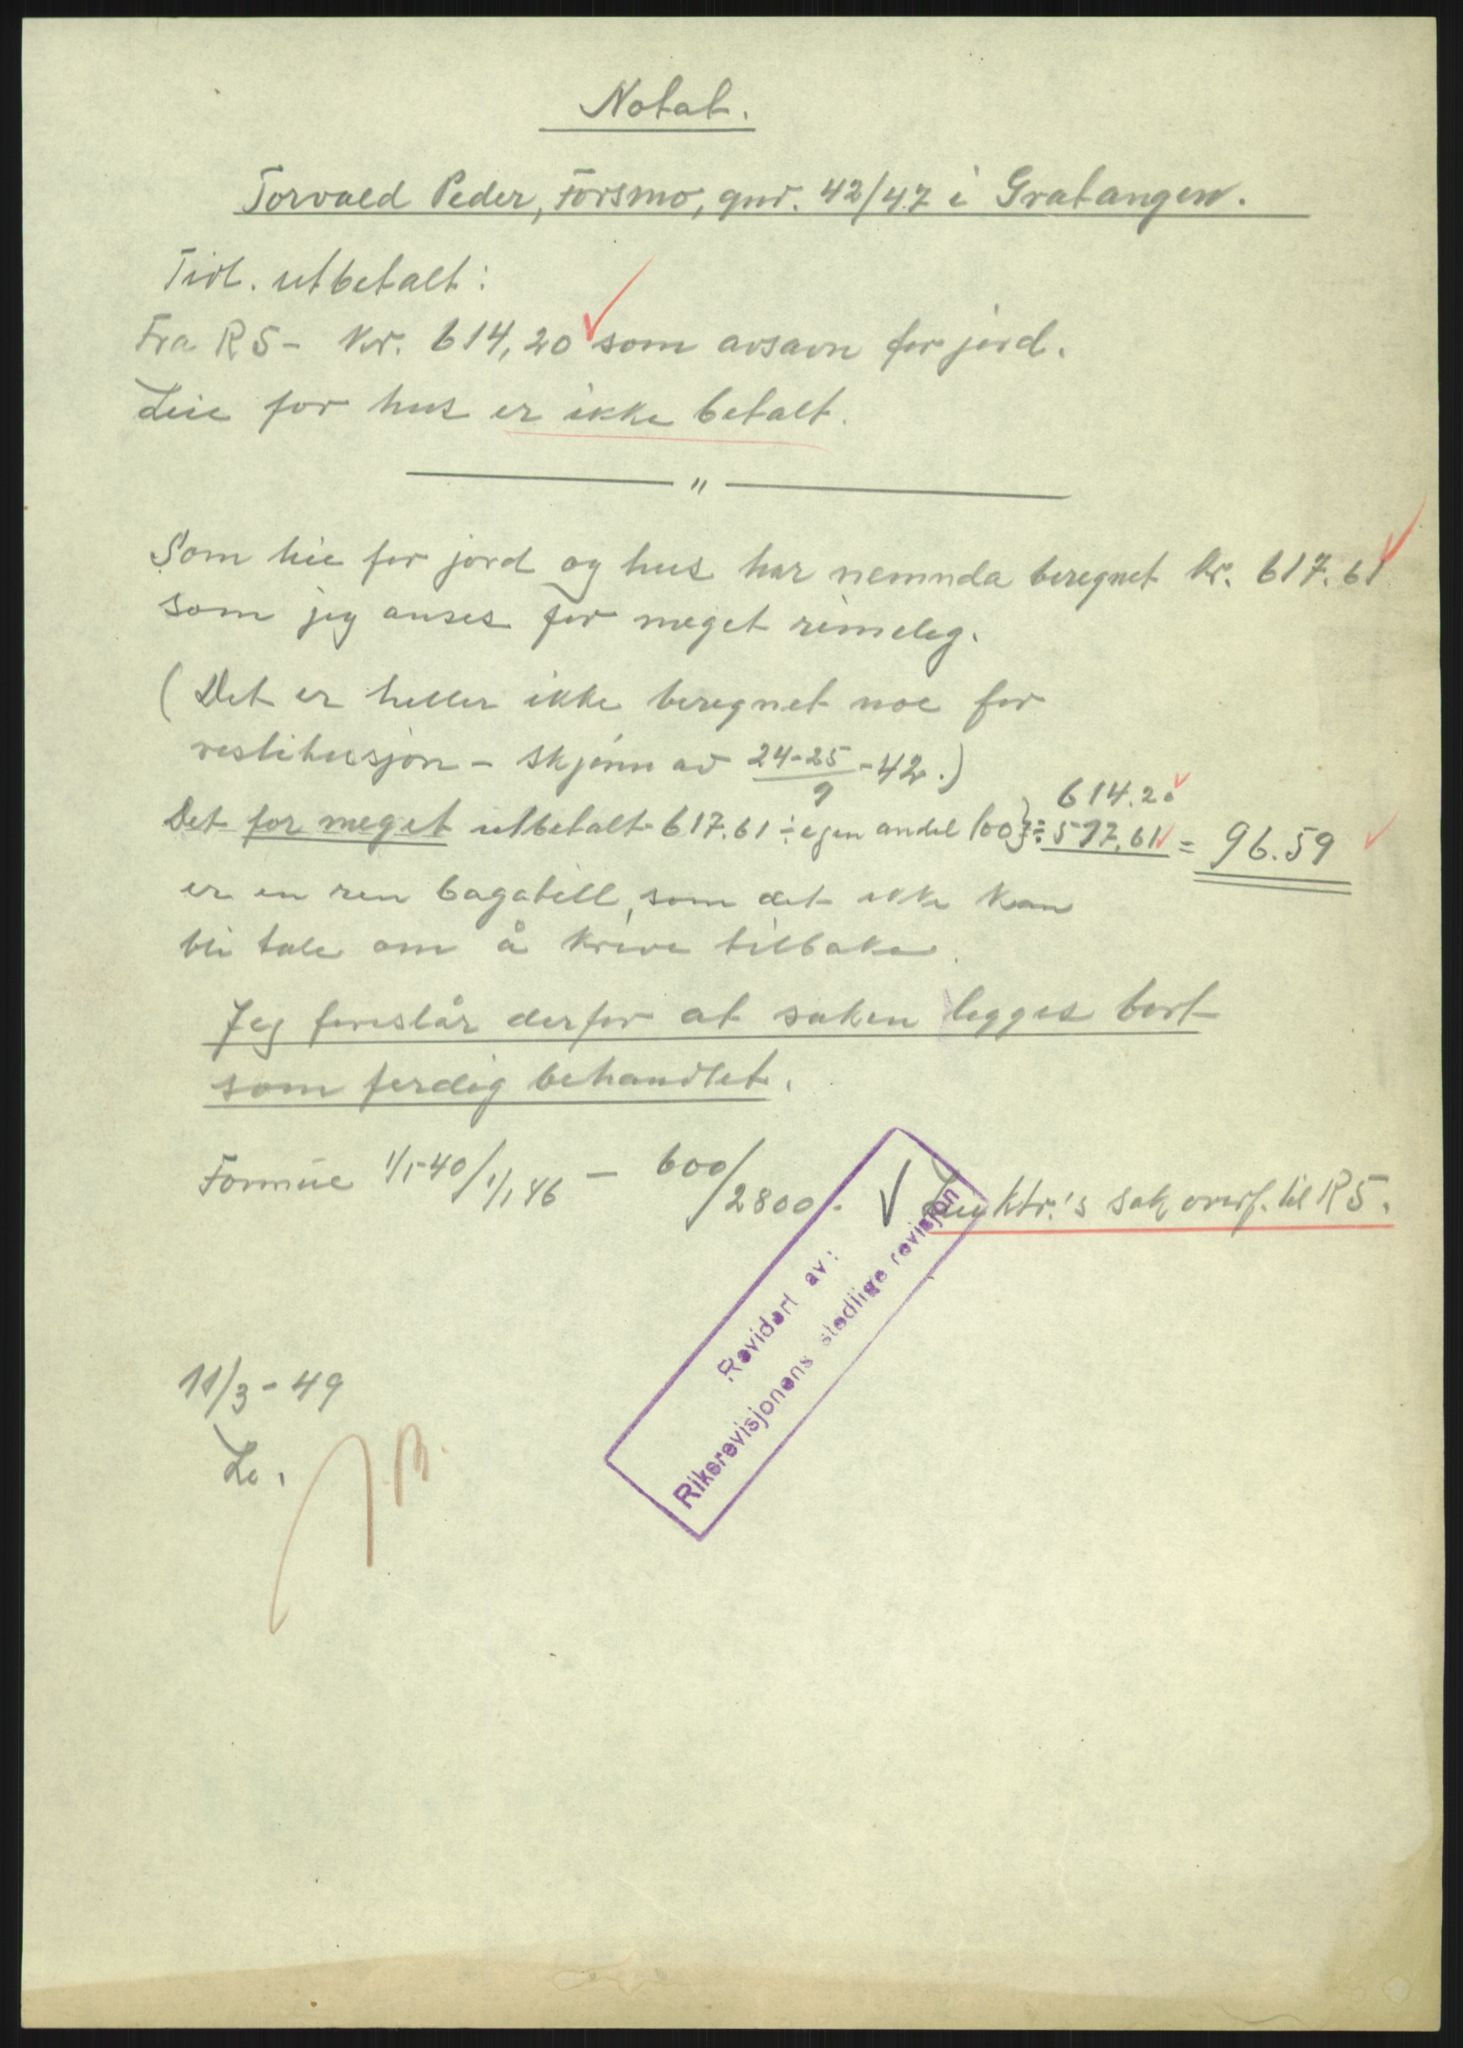 Notat.
Torvald Peder, Forsmo, gnr. 42/47 i Gratangen.
Tidl. utbetalt:
Fra R5 - kr. 614,20 som avsavn for jord.
Leie for hus er ikke betalt.
"
Som leie for jord og hus har nemnda beregnet kr. 617.61
som jeg anses for meget rimeleg.
(Det er heller ikke beregnet noe for
restitusjon - skjønn av 24-25/9-42.)
614.20
Det for meget utbetalt 617.61 ÷ egen andel 100} ÷ 517.61 = 96.59
er en ren bagatell, som det ikke kan
bli tale om å kreve tilbake.
Jeg foreslår derfor at saken legges bort
som ferdig behandlet.
Formue 1/1-40/1/1 46 - 600/2800.- ktr.'s sak overf. til R5.
Revidert av:
Riksrevisjonens stedlige revisjon
11/3-49
Le.
J.B.